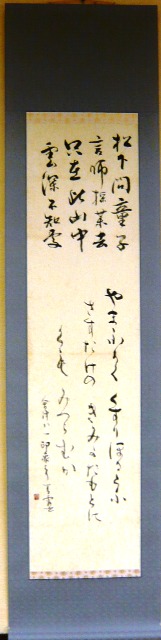 松下問童子
言師採薬去
只在此山中
雲深不知處
やまふかく くすりほるとふ
さすたけの きみがたもとに
くも みつらむか